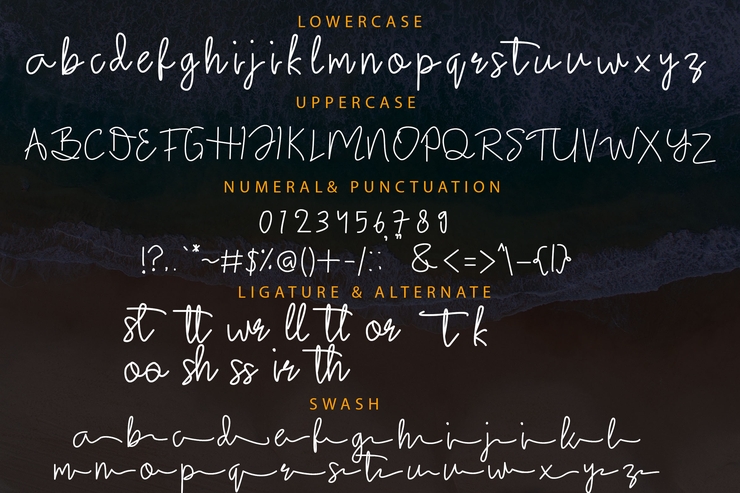 LOWERCASE
abcdefghijiklmnopqrstuvwxyz
UPPERCASE
ABCDEFGHIJIKLMNOPQRSTUVWXYZ
NUMERAL& PUNCTUATION
0123456789
!?,.`*~#$%@()+-/:; &<=>^\-{|}
LIGATURE & ALTERNATE
st tt wr ll tt or t k
oo sh ss ir th
SWASH
a b c d e f g h i j i k l
m n o p q r s t u v w x y z